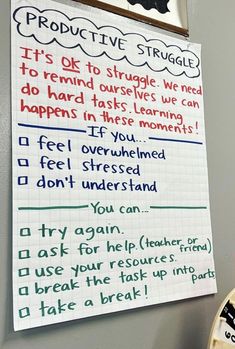 PRODUCTIVE STRUGGLE
It's OK to struggle. We need
to remind ourselves we can
do hard tasks. Learning
happens in these moments!
If you...
feel overwhelmed
feel stressed
don't understand
You can...
try again.
ask for help. (teacher or friend)
use your resources.
break the task up into parts
take a break!